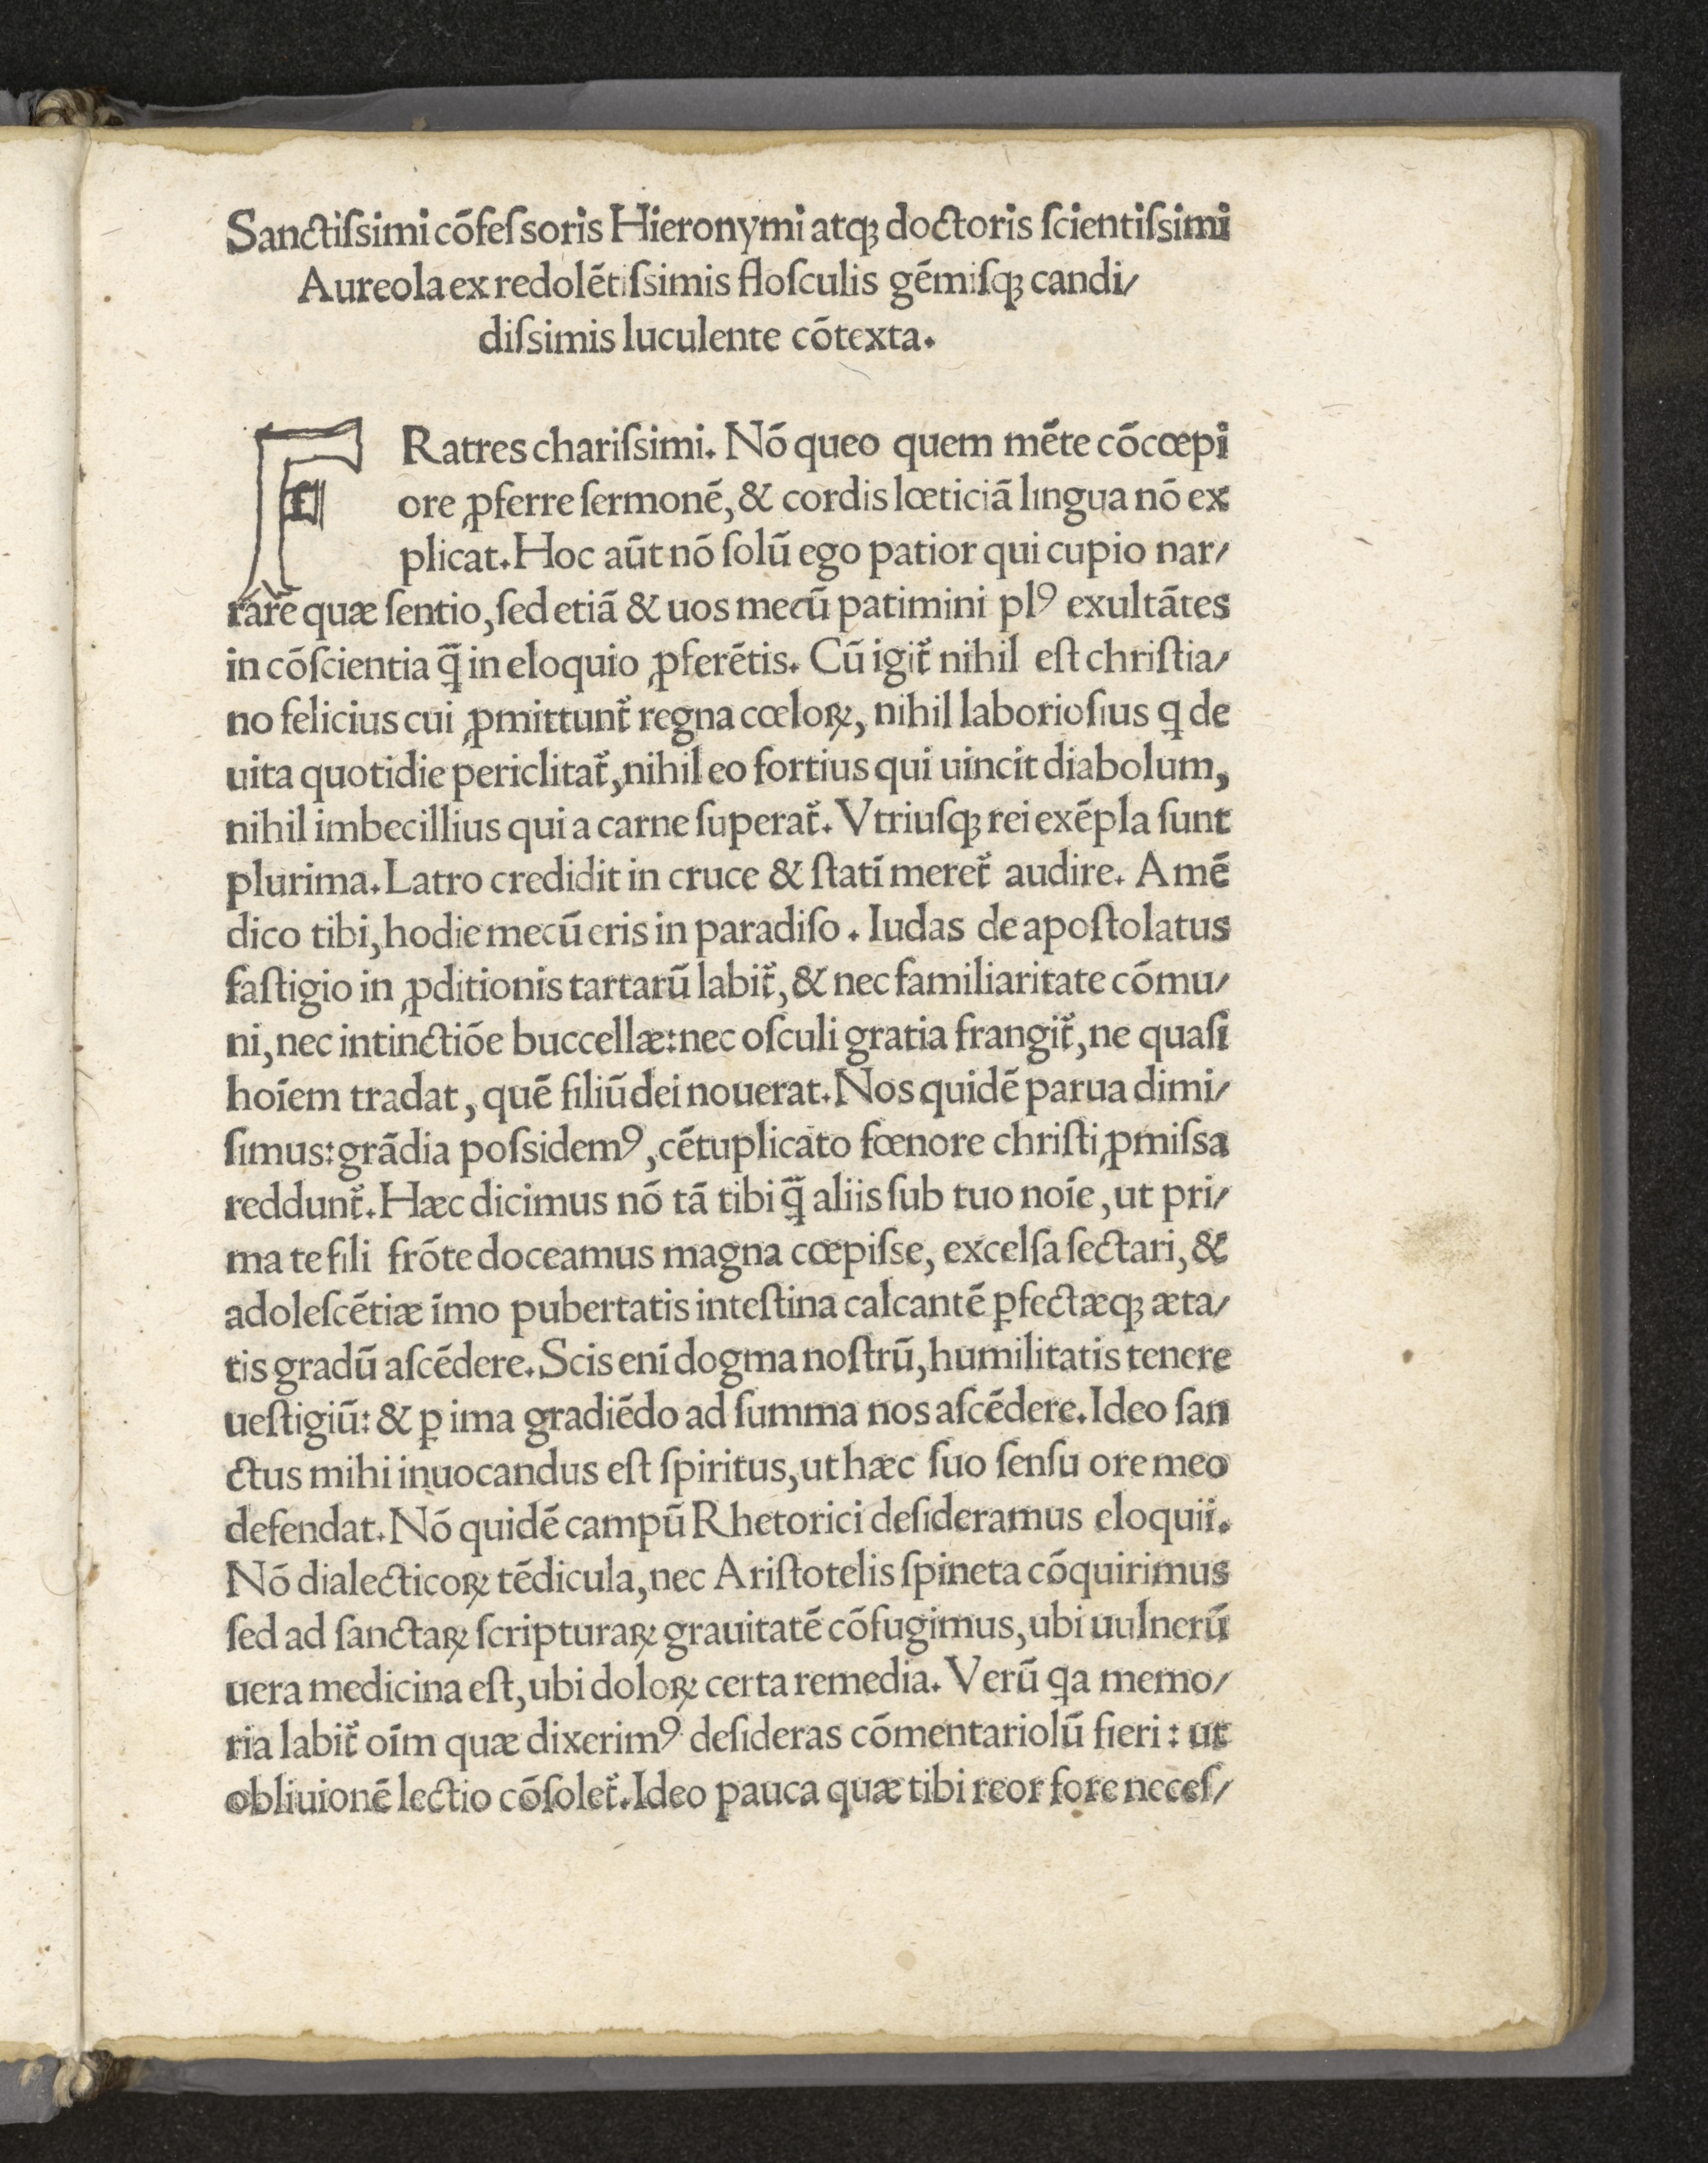 Sanctiſsimi cōfeſsoris Hieronymi atqꝫ doctoris ſcientiſsimi
Aureola ex redolētiſsimis floſculis gēmiſqꝫ candi/
diſsimis luculente cōtexta.
FRatres chariſsimi. Nō queo quem mēte cōcœpi
ore ꝓferre ſermonē, & cordis lœticiā lingua nō ex
plicat. Hoc aūt nō ſolū ego patior qui cupio nar/
rare quæ ſentio, ſed etiā & uos mecū patimini plꝰ exultātes
in cōſcientia ꝗ̄ in eloquio ꝓferētis. Cū igit̃ nihil eſt chriſtia/
no felicius cui ꝓmittunt̃ regna cœloꝝ, nihil laborioſius ꝗ de
uita quotidie periclitat̃, nihil eo fortius qui uincit diabolum,
nihil imbecillius qui a carne ſuperat̃. Vtriuſqꝫ rei exēpla ſunt
plurima. Latro credidit in cruce & ſtatī meret̃ audire. Amē
dico tibi, hodie mecū eris in paradiſo. Iudas de apoſtolatus
faſtigio in ꝓditionis tartarū labit̃, & nec familiaritate cōmu/
ni, nec intinctiōe buccellæ: nec oſculi gratia frangit̃, ne quaſi
hoīem tradat, quē filiū dei nouerat. Nos quidē parua dimi/
ſimus: grādia poſsidemꝰ, cētuplicato fœnore chriſti ꝓmiſsa
reddunt̃. Hæc dicimus nō tā tibi ꝗ̄ aliis ſub tuo noīe, ut pri/
ma te fili frōte doceamus magna cœpiſse, excelſa ſectari, &
adoleſcētiæ īmo pubertatis inteſtina calcantē ꝑfectæqꝫ æta/
tis gradū aſcēdere. Scis enī dogma noſtrū, humilitatis tenere
ueſtigiū: & ꝑ ima gradiēdo ad ſumma nos aſcēdere. Ideo ſan
ctus mihi inuocandus eſt ſpiritus, ut hæc ſuo ſenſu ore meo
defendat. Nō quidē campū Rhetorici deſideramus eloquii.
Nō dialecticoꝝ tēdicula, nec Ariſtotelis ſpineta cōquirimus
ſed ad ſanctaꝝ ſcripturaꝝ grauitatē cōfugimus, ubi uulnerū
uera medicina eſt, ubi doloꝝ certa remedia. Verū ꝗa memo/
ria labit̃ oīm quæ dixerimꝰ deſideras cōmentariolū fieri: ut
obliuionē lectio cōſolet̃. Ideo pauca quæ tibi reor fore neceſ/